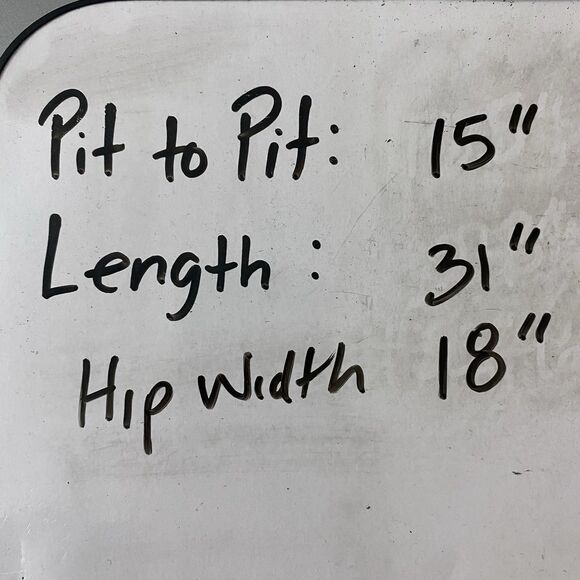 Pit to Pit: 15"
Length: 31"
Hip Width 18"